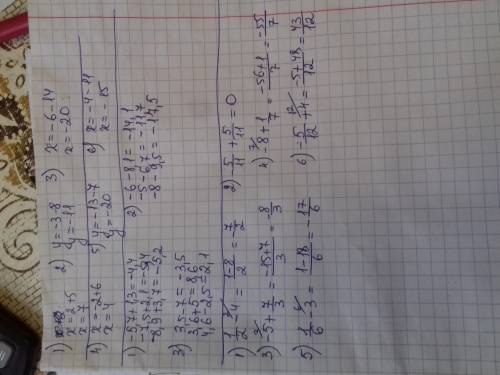 1) x=2+5 2) y=-3-8 3) x=-6-14
x=7 y=-11 x=-20
4) x=-2+6 5) y=-13-7 6) x=-4-11
x=4 y=-20 x=-15
1) -5,7+1,3=-4,4 2) -6-8,1=-14,1
-7,5+2,1=-5,4 -5-6,7=-11,7
-8,9+3,7=-5,2 -8-9,5=-17,5
3) 3,5-7=-3,5
3,6+5=8,6
4,6-2,5=2,1
1) 1/2-4=(1-8)/2=7/2 2) -5/11+5/11=0
3) -5+7/3=(-15+7)/3=-8/3 4) -8+1/7=(-56+1)/7=-55/7
5) 1/6-3=(1-18)/6=-17/6 6) -5/12+4=(-5+48)/12=43/12